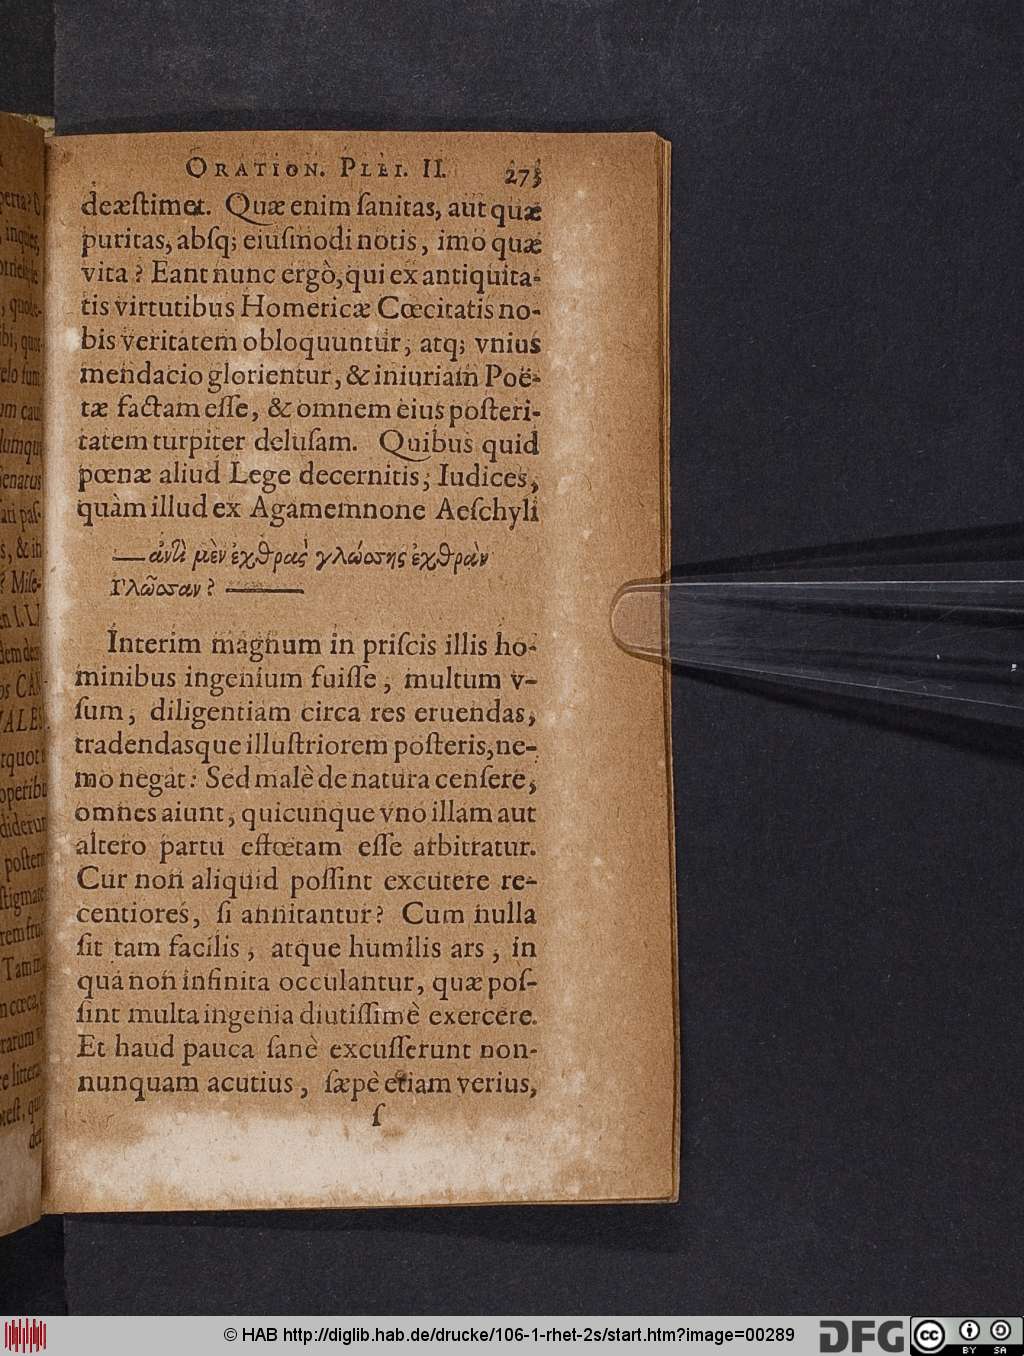 ORATION. PLEI. II. 273
deæſtimet. Quæ enim ſanitas, aut quæ
puritas, abſq; eiuſmodi notis, imò quæ
vita? Eant nunc ergò, qui ex antiquita-
tis virtutibus Homericæ Cœcitatis no-
bis veritatem obloquuntur, atq; vnius
mendacio glorientur, & iniuriam Poë-
tæ factam eſſe, & omnem eius poſteri-
tatem turpiter deluſam. Quibus quid
pœnæ aliud Lege decernitis, Iudices,
quàm illud ex Agamemnone Aeſchyli
—ἀντὶ μὲν ἐχθρας γλώσσης ἐχθρὰν
Γλῶσσαν? —
Interim magnum in priſcis illis ho-
minibus ingenium fuiſſe, multum v-
ſum, diligentiam circa res eruendas,
tradendasque illuſtriorem poſteris, ne-
mo negat: Sed malè de natura cenſere,
omnes aiunt, quicunque vno illam aut
altero partu effœtam eſſe arbitratur.
Cur non aliquid poſſint excutere re-
centiores, ſi annitantur? Cum nulla
ſit tam facilis, atque humilis ars, in
qua non infinita occulantur, quæ poſ-
ſint multa ingenia diutiſſimè exercere.
Et haud pauca ſanè excuſſerunt non-
nunquam acutius, ſæpè etiam verius,
ſ
© HAB http://diglib.hab.de/drucke/106-1-rhet-2s/start.htm?image=00289
DFG
cc
BY SA